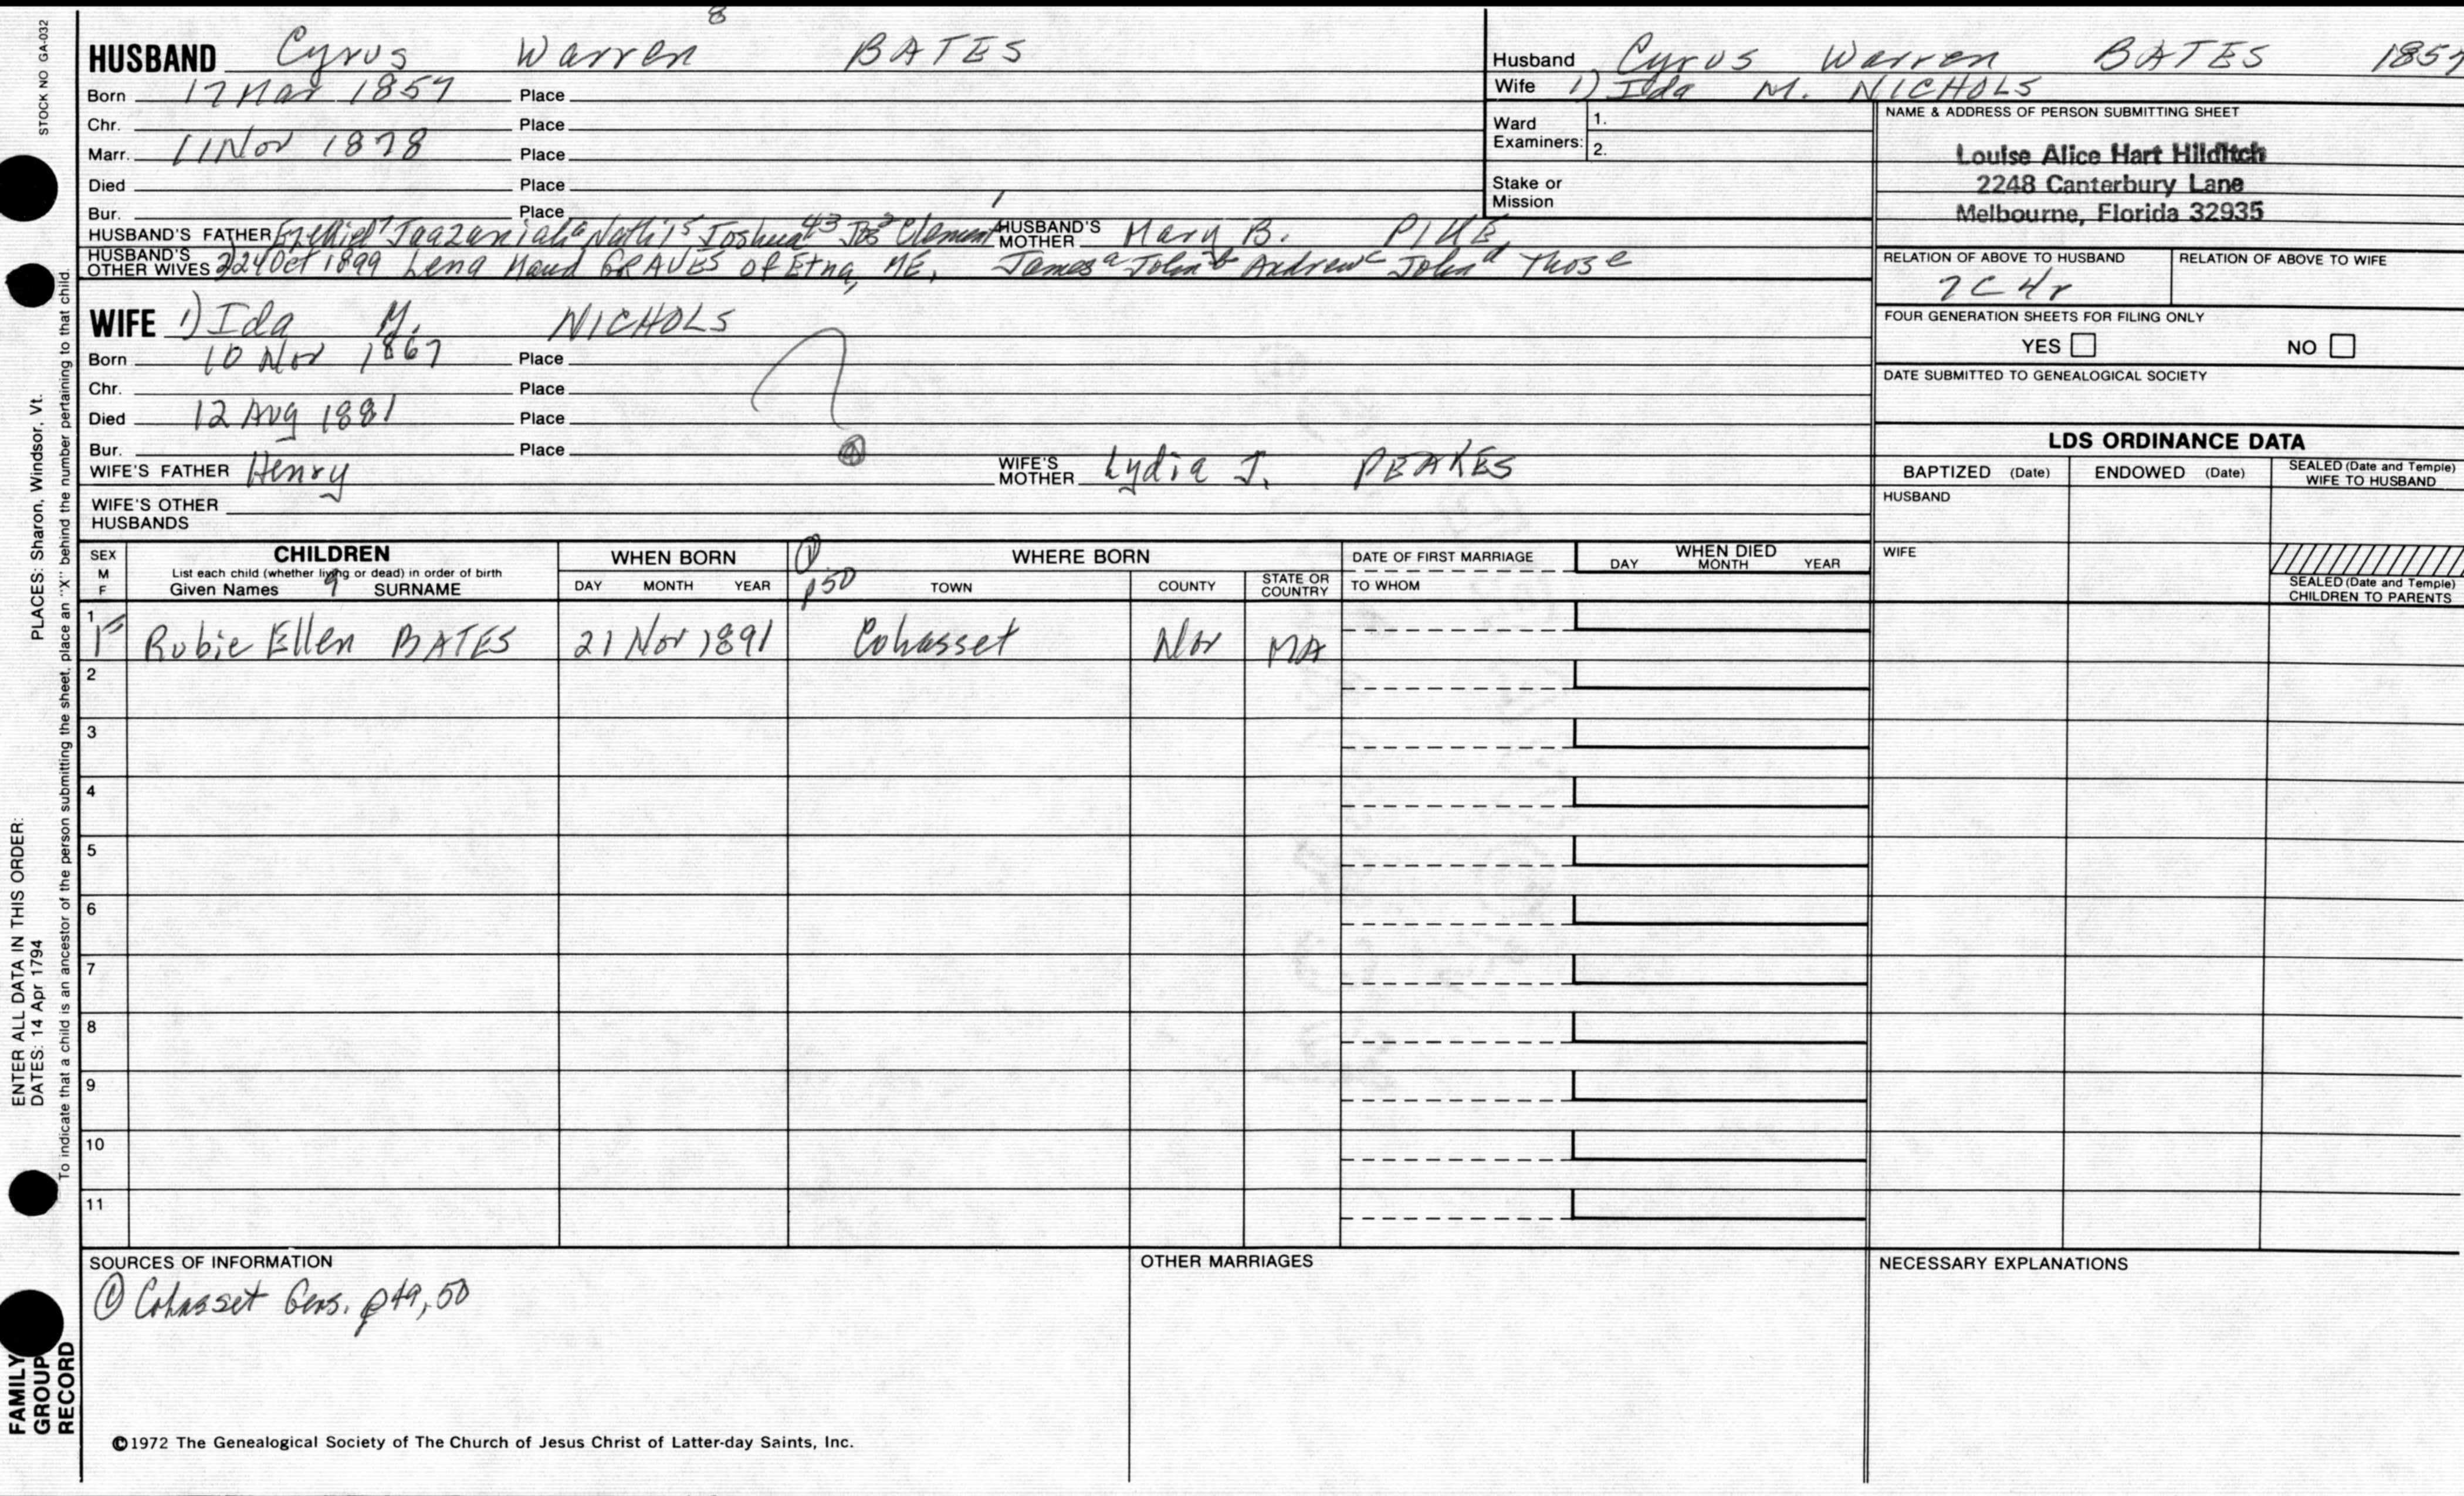 8
HUSBAND Cyrus Warren BATES
Born 17 Mar 1857 Place
Chr. Place
Marr. 11 Nov 1878 Place
Died Place
Bur. Place
HUSBAND'S FATHER Ezekiel7 Jaazaniah6 Nath'l5 Joshua4 3 Jos2 Clement1 HUSBAND'S MOTHER Mary B. PIKE,
HUSBAND'S OTHER WIVES 2) 24 Oct 1899 Lena Maud GRAVES of Etna, ME. Jamesa Johnb Andrewc Johnd
Husband Cyrus Warren BATES 1857
Wife 1) Ida M. NICHOLS
Ward Examiners: 1.
2.
Stake or Mission
NAME & ADDRESS OF PERSON SUBMITTING SHEET
Louise Alice Hart Hilditch
2248 Canterbury Lane
Melbourne, Florida 32935
RELATION OF ABOVE TO HUSBAND RELATION OF ABOVE TO WIFE
7C 4r
FOUR GENERATION SHEETS FOR FILING ONLY
YES NO
DATE SUBMITTED TO GENEALOGICAL SOCIETY
WIFE 1) Ida M. NICHOLS
Born 10 Nov 1867 Place
Chr. Place
Died 12 Aug 1881 Place
Bur. Place
WIFE'S FATHER Henry WIFE'S MOTHER Lydia J. PEAKES
WIFE'S OTHER HUSBANDS
LDS ORDINANCE DATA
BAPTIZED (Date) ENDOWED (Date) SEALED (Date and Temple) WIFE TO HUSBAND
HUSBAND
WIFE
SEALED (Date and Temple) CHILDREN TO PARENTS
SEX M F
CHILDREN
List each child (whether living or dead) in order of birth
Given Names 9 SURNAME
WHEN BORN
DAY MONTH YEAR
① p50
WHERE BORN
TOWN COUNTY STATE OR COUNTRY
DATE OF FIRST MARRIAGE
TO WHOM
WHEN DIED
DAY MONTH YEAR
1 F Rubie Ellen BATES 21 Nov 1891 Cohasset Nor MA
2
3
4
5
6
7
8
9
10
11
SOURCES OF INFORMATION
① Cohasset Gens. p49,50
OTHER MARRIAGES
NECESSARY EXPLANATIONS
©1972 The Genealogical Society of The Church of Jesus Christ of Latter-day Saints, Inc.
STOCK NO GA-032
ENTER ALL DATA IN THIS ORDER: PLACES: Sharon, Windsor, Vt.
DATES: 14 Apr 1794
To indicate that a child is an ancestor of the person submitting the sheet, place an "X" behind the number pertaining to that child.
FAMILY
GROUP
RECORD